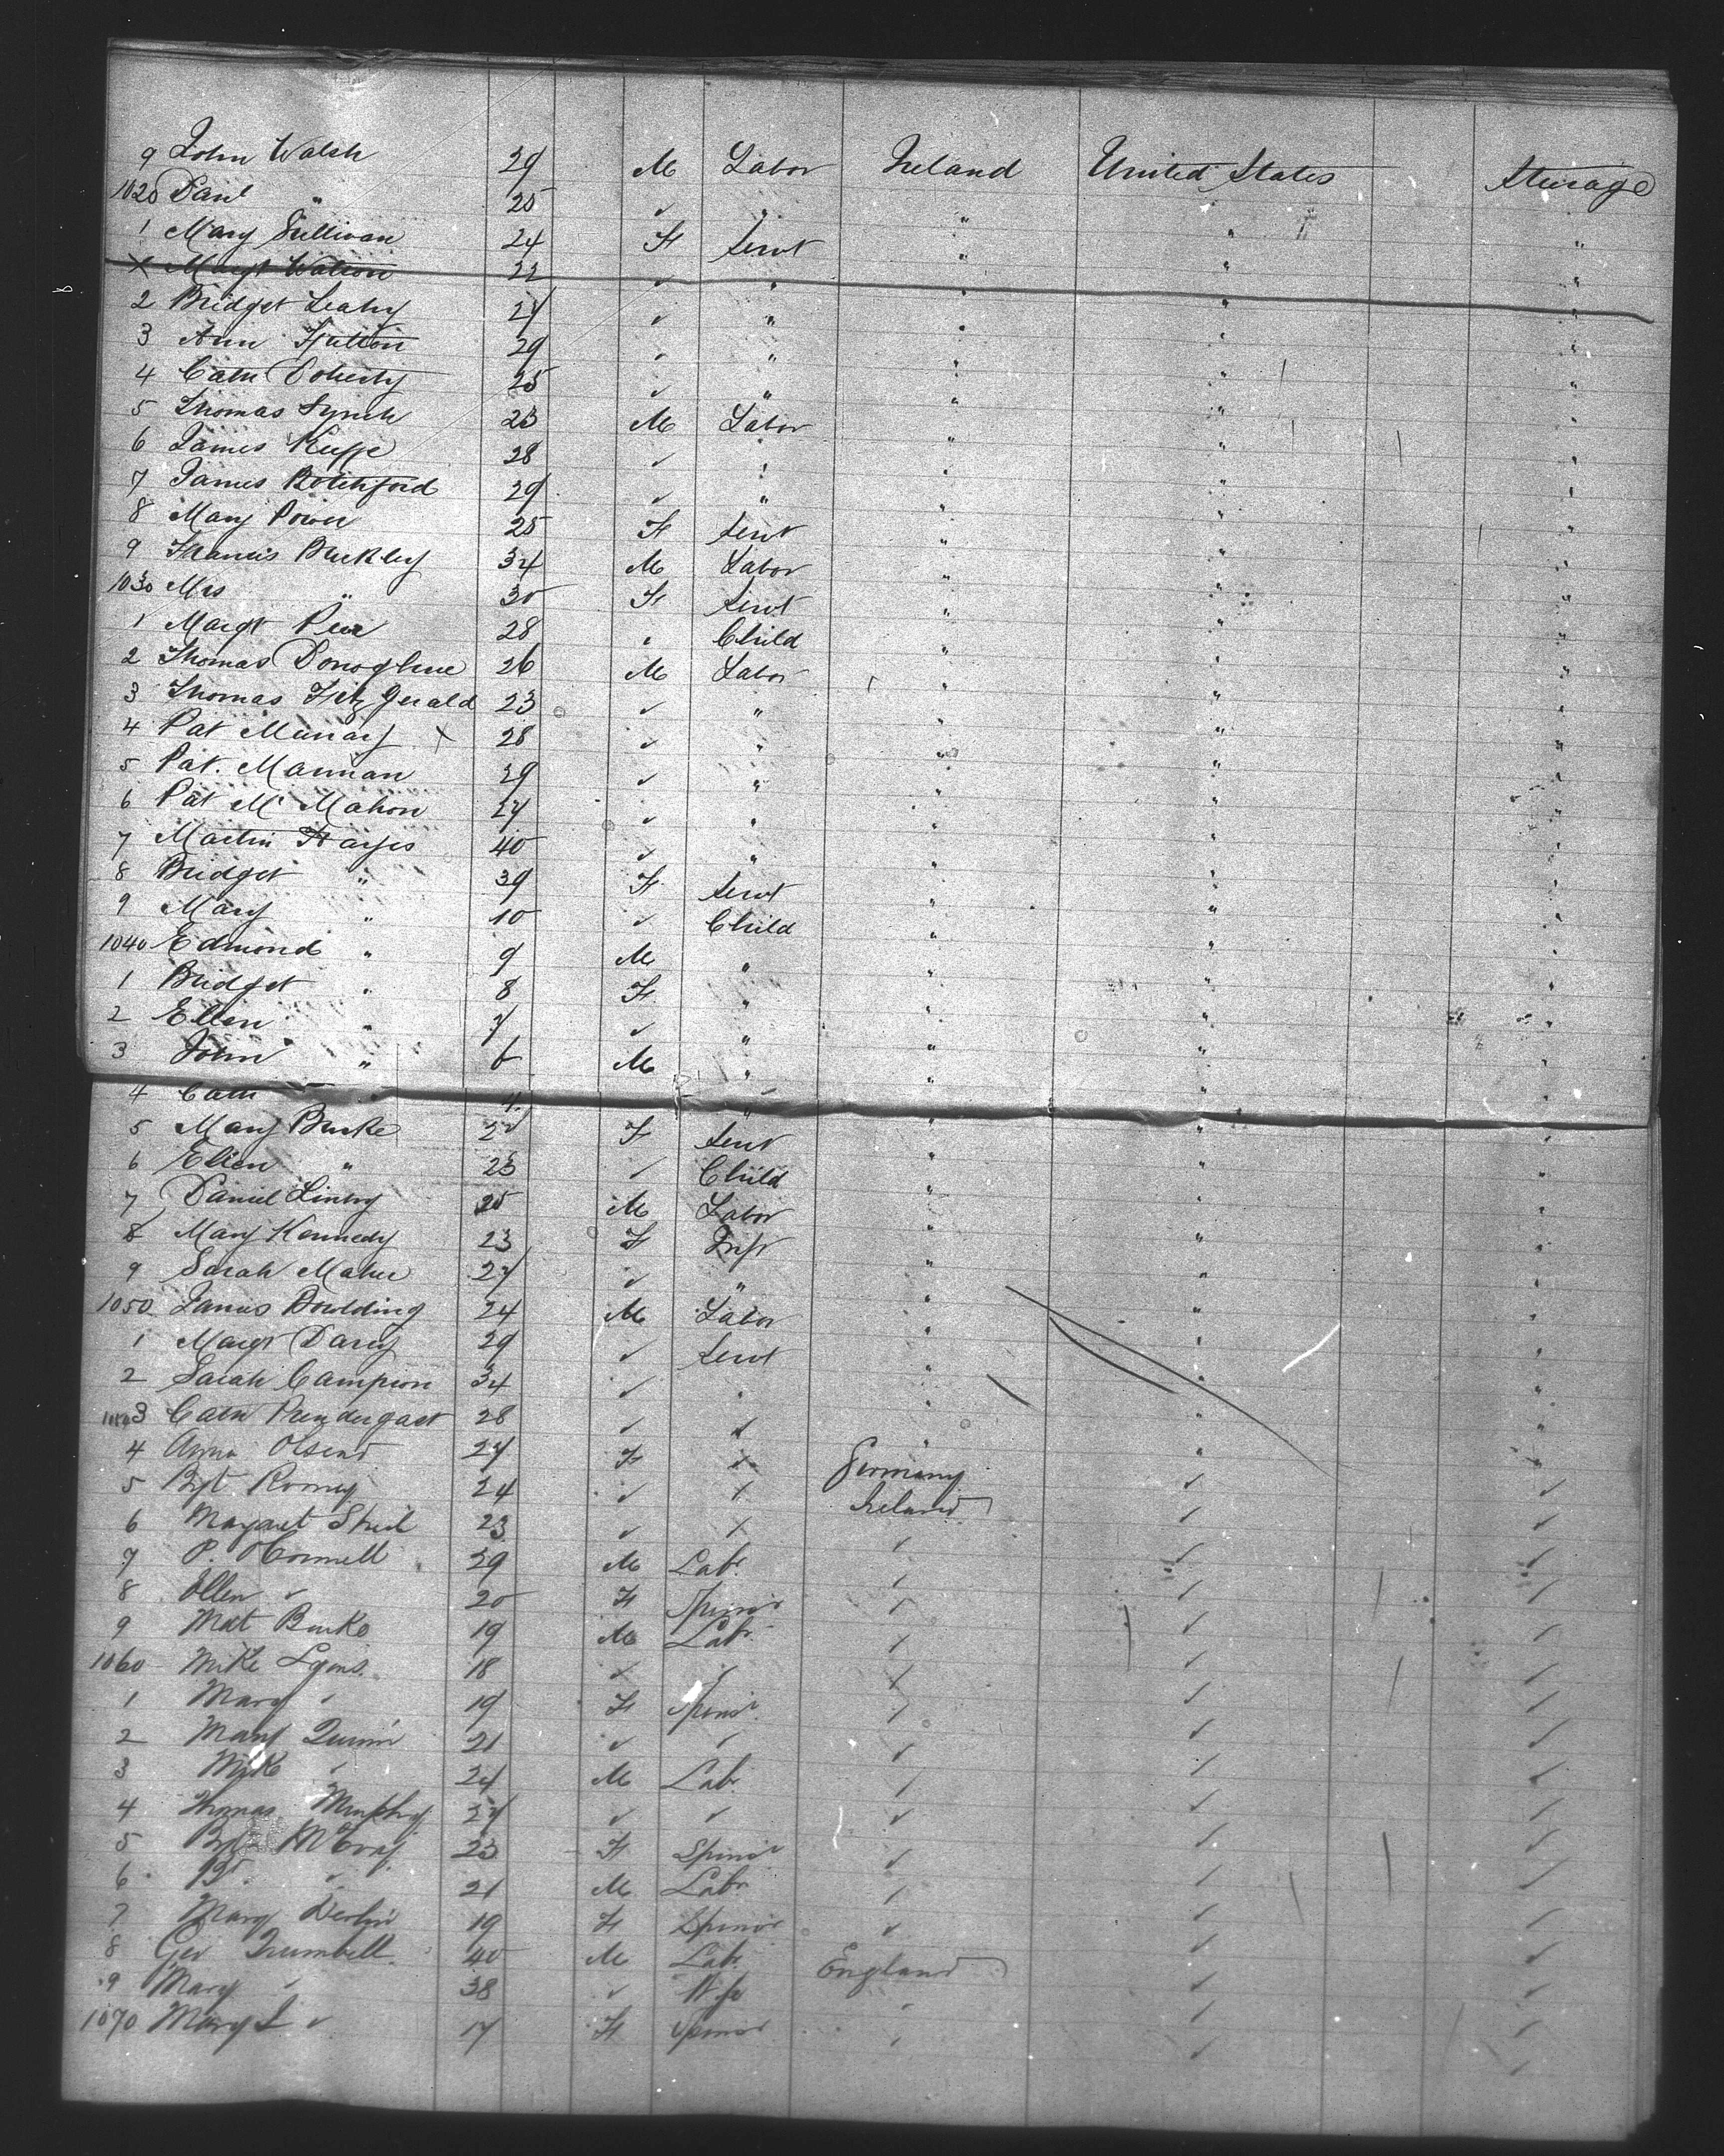 9 John Walsh 29 M Labor Ireland United States Steerage
1020 Danl " 25 ✓ " " " "
1 Mary Sullivan 24 F Servt " " "
x Margt Watson 22 ✓ " " " "
2 Bridget Leahy 27 ✓ " " " "
3 Ann Hutton 29 ✓ " " " "
4 Cath Doherty 25 ✓ " " " "
5 Thomas Lynch 23 M Labor " " "
6 James Keeffe 28 ✓ " " " "
7 James Botchford 29 ✓ " " " "
8 Mary Power 25 F Servt " " "
9 Francis Buckley 34 M Labor " " "
1030 Mrs " 30 F Servt " " "
1 Margt 28 " Child " " "
2 Thomas Donoghue 26 M Labor " " "
3 Thomas Fitzgerald 23 ✓ " " " "
4 Pat Murray x 28 ✓ " " " "
5 Pat. Mannan 29 ✓ " " " "
6 Pat Mc Mahon 27 ✓ " " " "
7 Martin Hayes 40 ✓ " " " "
8 Bridget " 39 F Servt " " "
9 Mary " 10 ✓ Child " " "
1040 Edmond " 9 M " " " "
1 Bridget " 8 F " " " "
2 Ellen " 7 ✓ " " " "
3 John " 6 M " " " "
4 Cath 4 " " " "
5 Mary Burke F Servt " " "
6 Ellen " 23 ✓ Child " " "
7 Daniel 25 M Labor " " "
8 Mary Kennedy 23 F " " "
9 Sarah Maher 27 ✓ " " " "
1050 James Dowlding 24 M Labor " " "
1 Margt Darcy 29 ✓ Servt " " "
2 Sarah Campion 34 ✓ " " " "
3 Cath Prendergast 28 ✓ " " " "
4 Anna 27 F " Germany ✓ ✓
5 Bgt Romey 24 ✓ ✓ Ireland ✓ ✓
6 Margaret 23 ✓ ✓ ✓ ✓ ✓
7 P. OConnell 29 M Labr ✓ ✓ ✓
8 Ellen ✓ 20 F Spinsr ✓ ✓ ✓
9 Mat Burke 19 M Labr ✓ ✓ ✓
1060 Mike Lyons 18 ✓ ✓ ✓ ✓ ✓
1 Mary ✓ 19 F Spinsr ✓ ✓ ✓
2 Mary Quinn 21 ✓ ✓ ✓ ✓ ✓
3 Mike ✓ 24 M Labr ✓ ✓ ✓
4 Thomas Murphy 27 ✓ ✓ ✓ ✓ ✓
5 McEvoy 23 F Spinsr ✓ ✓ ✓
6 ✓ 21 M Labr ✓ ✓ ✓
7 Mary Devlin 19 F Spinsr ✓ ✓ ✓
8 Geo Trumbell 40 M Labr England ✓ ✓
9 Mary ✓ 38 ✓ Wife ✓ ✓ ✓
1070 Mary ✓ 17 F Spinsr ✓ ✓ ✓